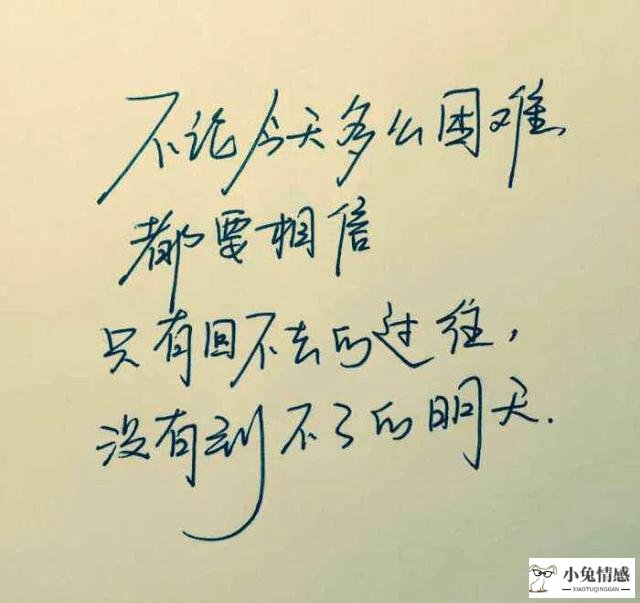 不论今天多么困难
都要相信
只有回不去的过往，
没有到不了的明天.
小兔情感
XIAOTUQINGGAN